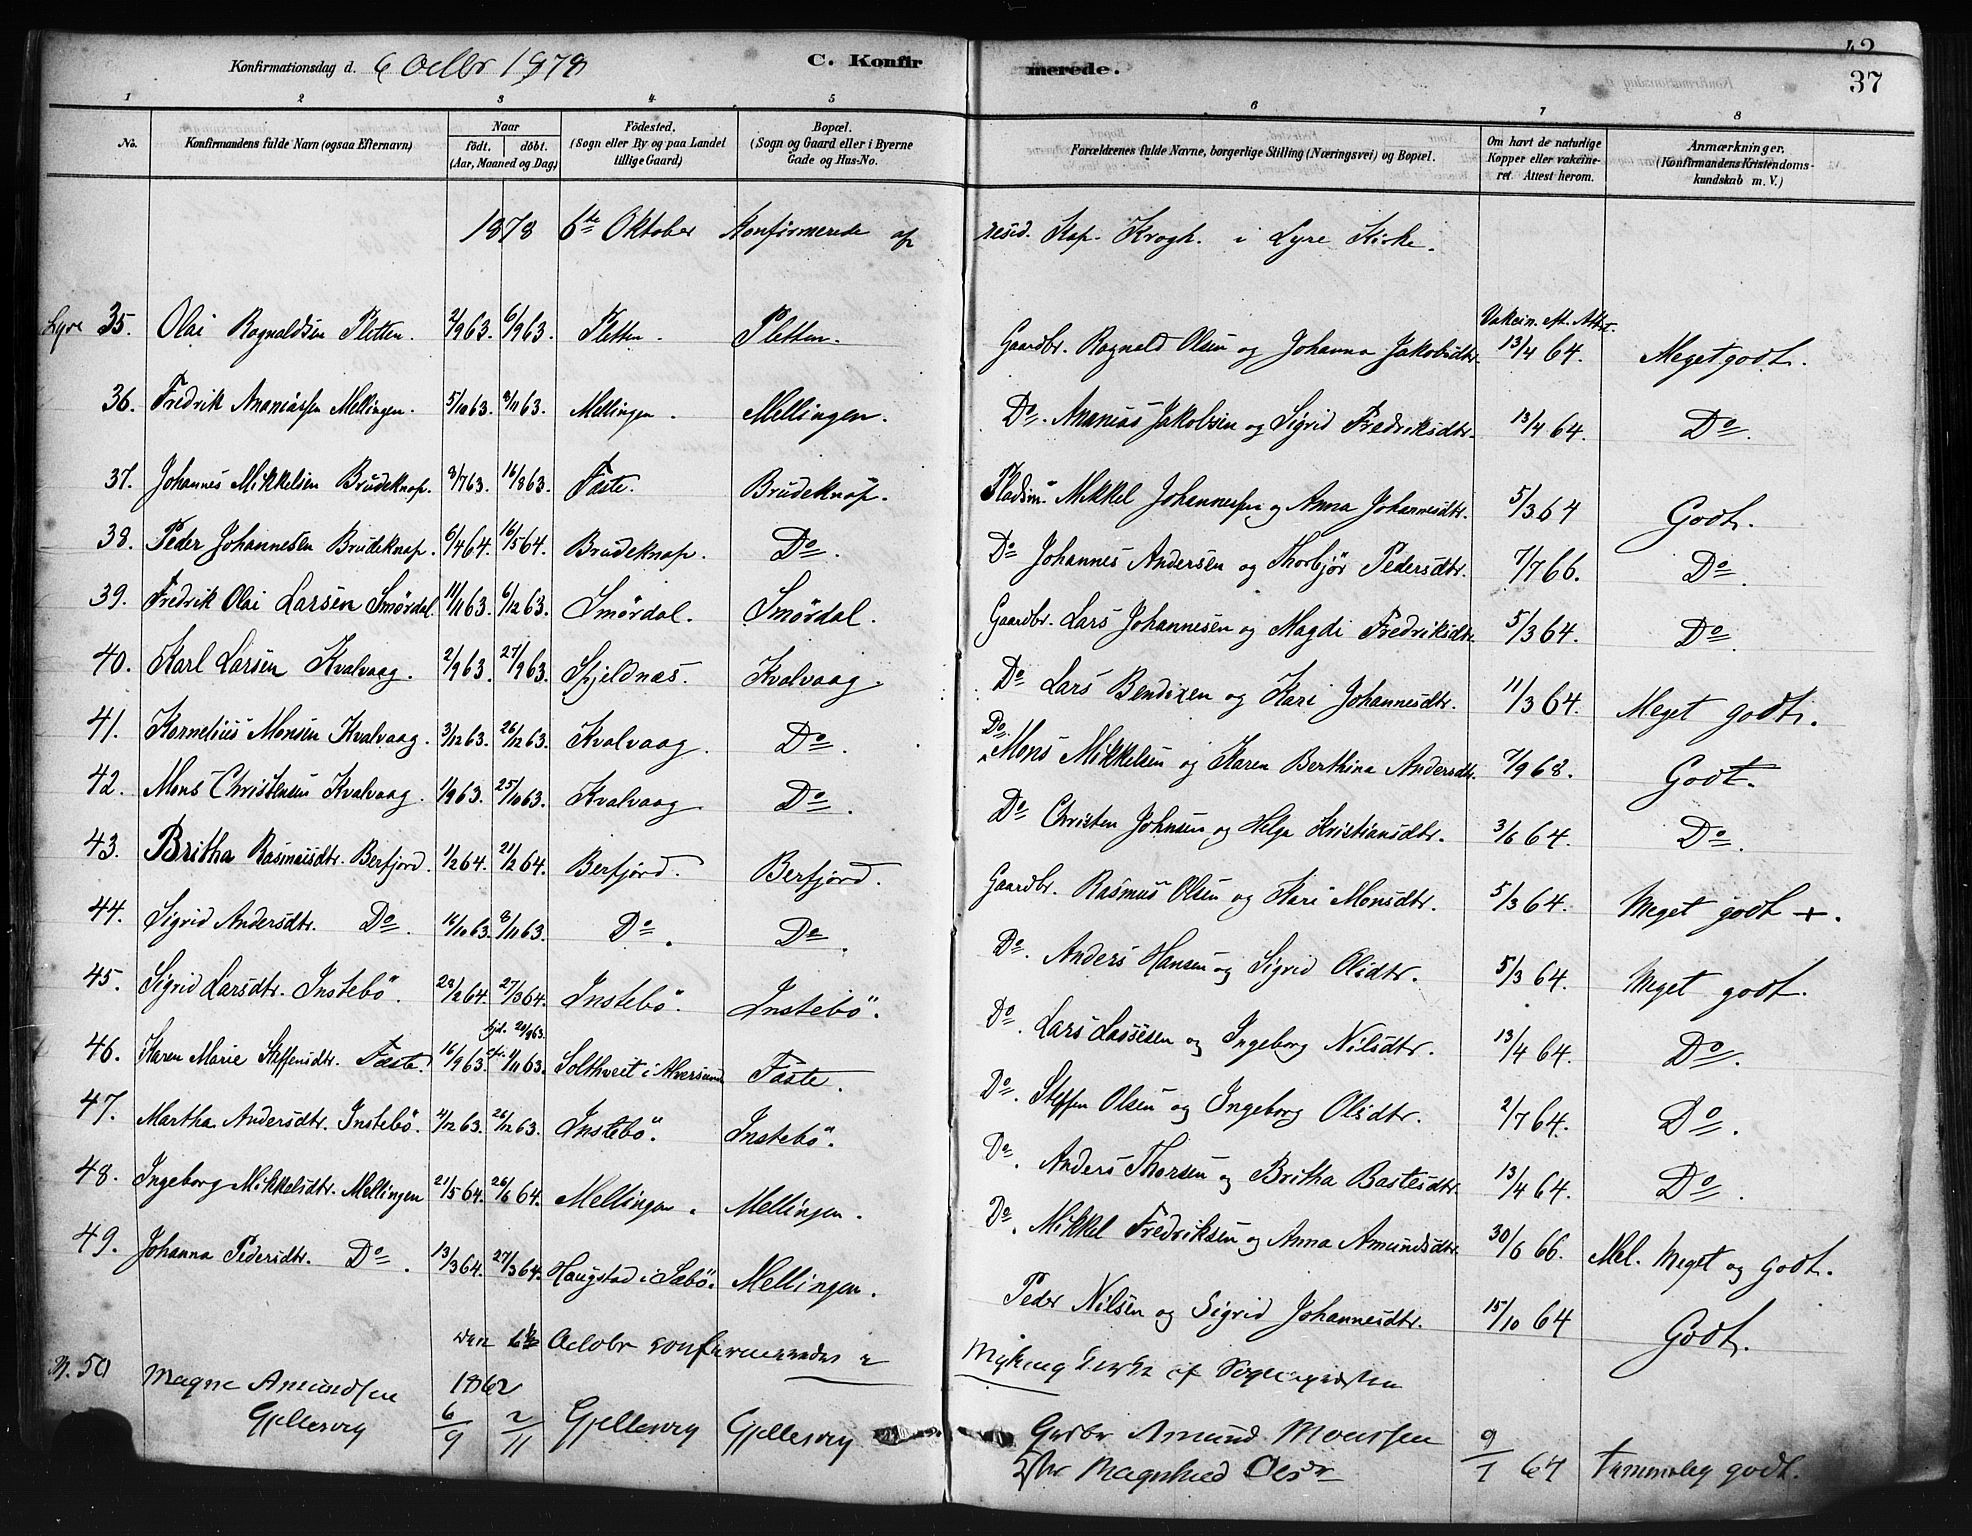 Konfirmationsdag d. 6 Octbr 1878 C. Konfirmerede. 37
1 2 3 4 5 6 7 8
No. Konfirmandens fulde Navn (ogsaa Efternavn) Naar født. døbt. (Aar, Maaned og Dag) Födested. (Sogn eller By og paa Landet tillige Gaard) Bopæl. (Sogn og Gaard eller i Byerne Gade og Hus-No. Forældrenes fulde Navne, borgerlige Stilling (Næringsvei) og Bopæl. Om havt de naturlige Kopper eller vakcineret. Attest herom. Anmærkninger. (Konfirmandens Kristendomskundskab m. V.)
1878 6te Oktober Konfirmerede af resid. Kap. Krogh. i Lyre Kirke.
Vakcin. Att.
Lyre 35. Olai Ragnaldsen Pletten. 2/9 63. 6/9 63. Pletten. Pletten. Gaardbr. Ragnald Olsen og Johanna Jakobsdtr. 13/4 64. Meget godt.
36. Fredrik Ananiassen Mellingen. 5/10 63. 8/11 63. Mellingen. Mellingen. Do. Ananias Jakobsen og Sigrid Fredriksdtr. 13/4 64. Do.
37. Johannes Mikkelsen Brudeknap. 8/7 63. 16/8 63. Fæste. Brudeknap. Pladsm. Mikkel Johannessen og Anna Johannesdtr. 5/3 64 Godt.
38. Peder Johannesen Brudeknap. 6/4 64. 16/5 64. Brudeknap. Do. Do Johannes Andersen og Thorbjør Pedersdtr. 7/7 66. Do.
39. Fredrik Olai Larsen Smördal. 11/11 63. 6/12 63. Smördal. Smördal. Gaardbr. Lars Johannesen og Magdi Fredriksdtr. 5/3 64. Do.
40. Karl Larsen Kvalvaag. 2/9 63. 27/9 63. Fjeldnæs. Kvalvaag. Do Lars Bendixen og Kari Johannesdtr. 11/3 64. Meget godt.
41. Kornelius Monsen Kvalvaag. 3/12 63. 26/12 63. Kvalvaag. Do. Do. Mons Mikkelsen og Karen Berthina Andersdtr. 7/9 68. Godt.
42. Mons Christensen Kvalvaag. 1/9 63. 25/10 63. Kvalvaag. Do. Do Christen Johnsen og Helga Kristiansdtr. 3/6 64. Do.
43. Britha Rasmusdtr. Berfjord. 1/2 64. 21/2 64. Berfjord. Berfjord. Gaardbr. Rasmus Olsen og Kari Monsdtr. 5/3 64. Meget godt +.
44. Sigrid Andersdtr. Do. 16/10 63. 8/11 63. Do. Do. Do. Anders Hansen og Sigrid Olsdtr. 5/3 64. Meget godt.
45. Sigrid Larsdtr. Instebö. 23/2 64. 27/3 64. Instebö. Instebö. Do. Lars Lassesen og Ingeborg Nilsdtr. 13/4 64. Do.
46. Karen Marie Steffensdtr. Fæste. 16/9 63. hjd. 20/9 63. 1/11 63. Solthveit i Alversund Fæste. Do. Steffen Olsen og Ingeborg Olsdtr. 2/7 64. Do.
47. Martha Andersdtr. Instebö. 4/12 63. 26/12 63. Instebö. Instebö. Do. Anders Thorsen og Britha Bastesdtr. 13/4 64. Do.
48. Ingeborg Mikkelsdtr. Mellingen 21/5 64. 26/6 64. Mellingen. Mellingen. Do. Mikkel Fredriksen og Anna Amundsdtr. 30/6 66. Mel. Meget og Godt.
49. Johanna Pedersdtr. Do. 13/3 64. 27/3 64. Haugstad i Sæbö. Mellingen. Peder Nilsen og Sigrid Johannesdtr. 15/10 64 Godt.
den 6te Octobr confirmeredes i Myking Kirke af Sognepræsten
N. 50 Magne Amundsen Gjellesvig 1862 6/9 2/11 Gjellesvig Gjellesvig Grdbr Amund Monssen Magnhild Olsdr 9/7 64 temmelig godt.